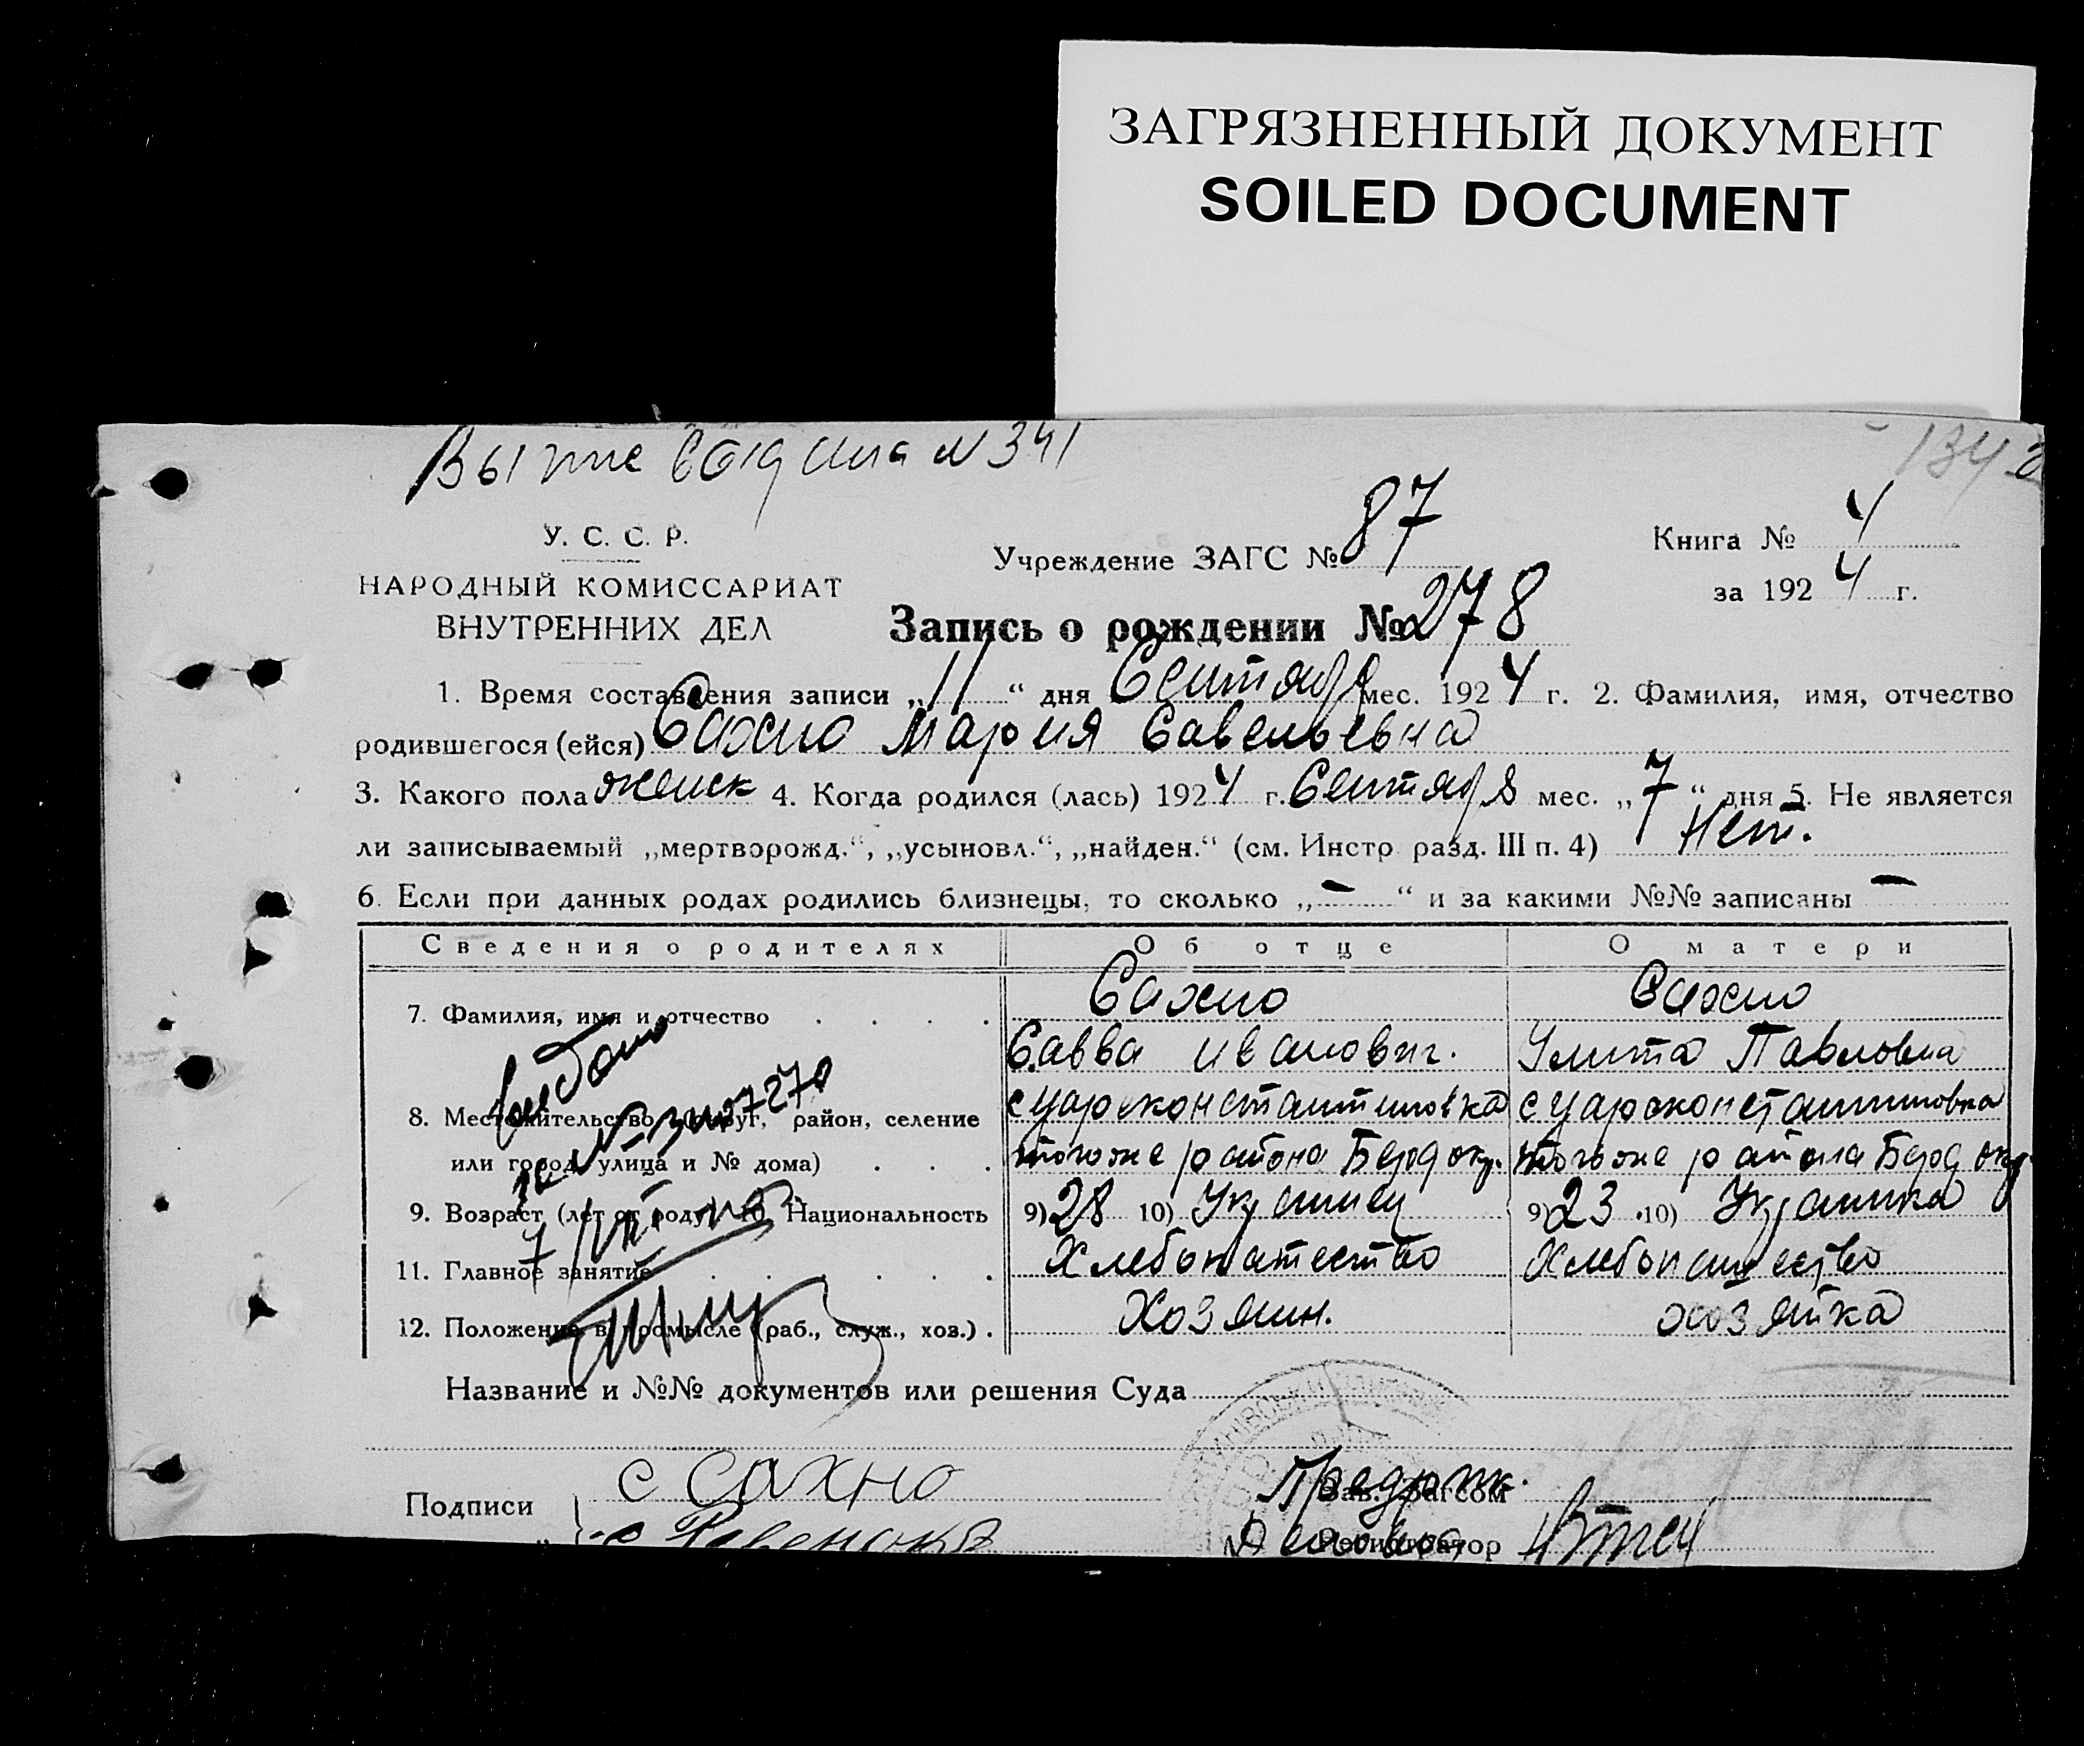 ЗАГРЯЗНЕННЫЙ ДОКУМЕНТ
SOILED DOCUMENT
Выпис выдана N 341
У. С. С. Р.
НАРОДНЫЙ КОМИССАРИАТ
ВНУТРЕННИХ ДЕЛ
Учреждение ЗАГС № 87
Книга № 4
за 1924 г.
Запись о рождении № 278
1. Время составления записи „11“ дня Сентября мес. 1924 г. 2. Фамилия, имя, отчество
родившегося (ейся) Сахно Мария Савельевна
3. Какого пола женск 4. Когда родился (лась) 1924 г. Сентября мес. „7“ дня 5. Не является
ли записываемый „мертворожд.“, „усыновл.“, „найден.“ (см. Инстр. разд. III п. 4) Нет.
6. Если при данных родах родились близнецы, то сколько „—“ и за какими №№ записаны —
Сведения о родителях Об отце О матери
7. Фамилия, имя и отчество . . . . Сахно Сахно
Савва Иванович. Улита Павловна
8. Местожительство (округ, район, селение с Цареконстантиновка с Цареконстантиновка
или город, улица и № дома) . . . того же района Берд окр. того же района Берд окр.
9. Возраст (лет от роду) 10. Национальность 9) 28 10) Украинец 9) 23 10) Украинка
11. Главное занятие . . . . . Хлебопашество Хлебопашество
12. Положение в промысле (раб., служ., хоз.) . Хозяин. хозяйка
Название и №№ документов или решения Суда
Подписи с Сахно
Зав. Загсом
Регистратор